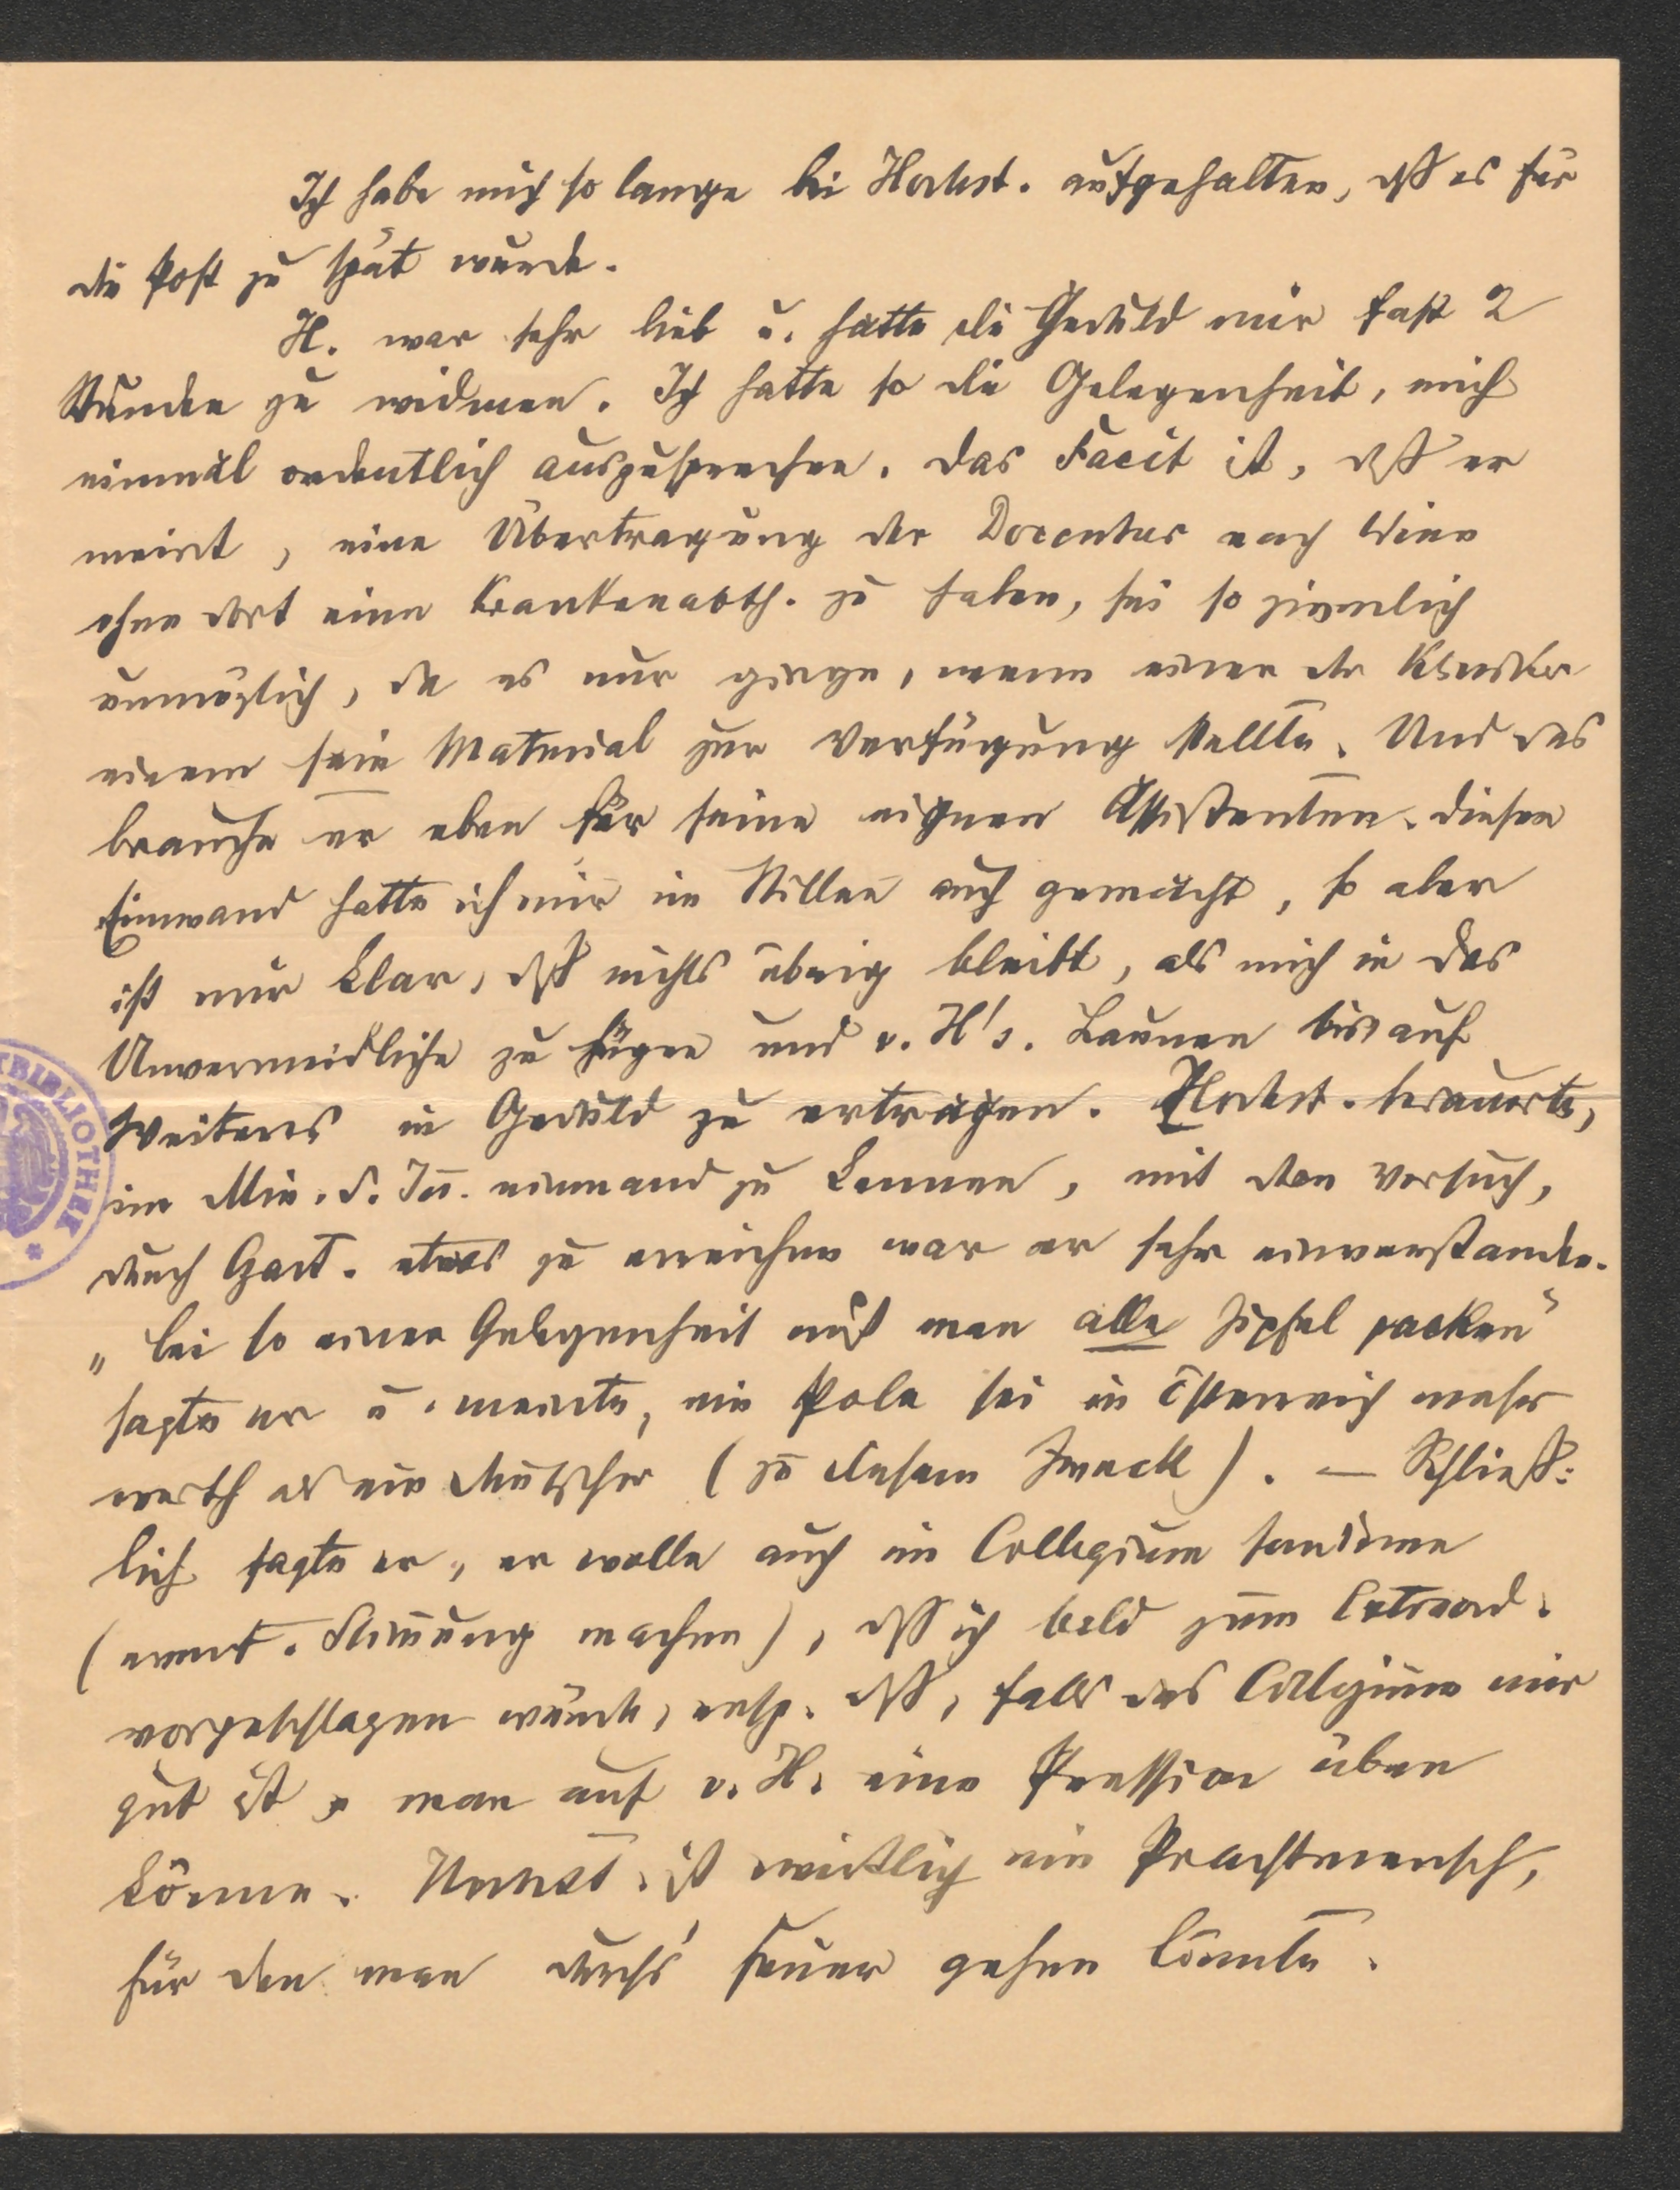 Ich habe mich so lange bei Hochst. aufgehalten, dß es für
die Post zu spät wurde.
H. war sehr lieb u. hatte die Geduld mir fast 2
Stunden zu widmen. Ich hatte so die Gelegenheit, mich
einmal ordentlich auszusprechen. Das Facit ist, dß er
meint, eine Übertragung der Docentur nach Wien
ohne dort eine Krankenabth. zu haben, sei so ziemlich
unmöglich, da es nur ginge, wenn einer der Kliniker
einem sein Material zur Verfügung stellte. Und das
brauche er eben für seine eignen Assistenten. Diesen
Einwand hatte ich mir im Stillen auch gemacht, so aber
ist mir klar, dß nichts übrig bleibt, als mich in das
Unvermeidliche zu fügen und v. H's. Launen bis auf
Weiteres in Geduld zu ertragen. Hochst. bedauerte,
im Min. d. In. niemand zu kennen, mit dem Versuch,
durch Gart. etwas zu erreichen war er sehr einverstanden.
„bei so einer Gelegenheit muß man alle Zipfel packen"
sagte er u. meinte, ein Pole sei in Österreich mehr
werth als ein Deutscher (zu diesem Zweck). — Schließ:
lich sagte er, er wolle auch im Collegium sondiren
(event. Stimmung machen), dß ich bald zum Extraord.
vorgeschlagen würde, resp. dß, falls das Collegium mir
gut ist, man auf v. H. eine Pression üben
könne. Hochst. ist wirklich ein Prachtmensch,
für den man durch's Feuer gehen könnte.